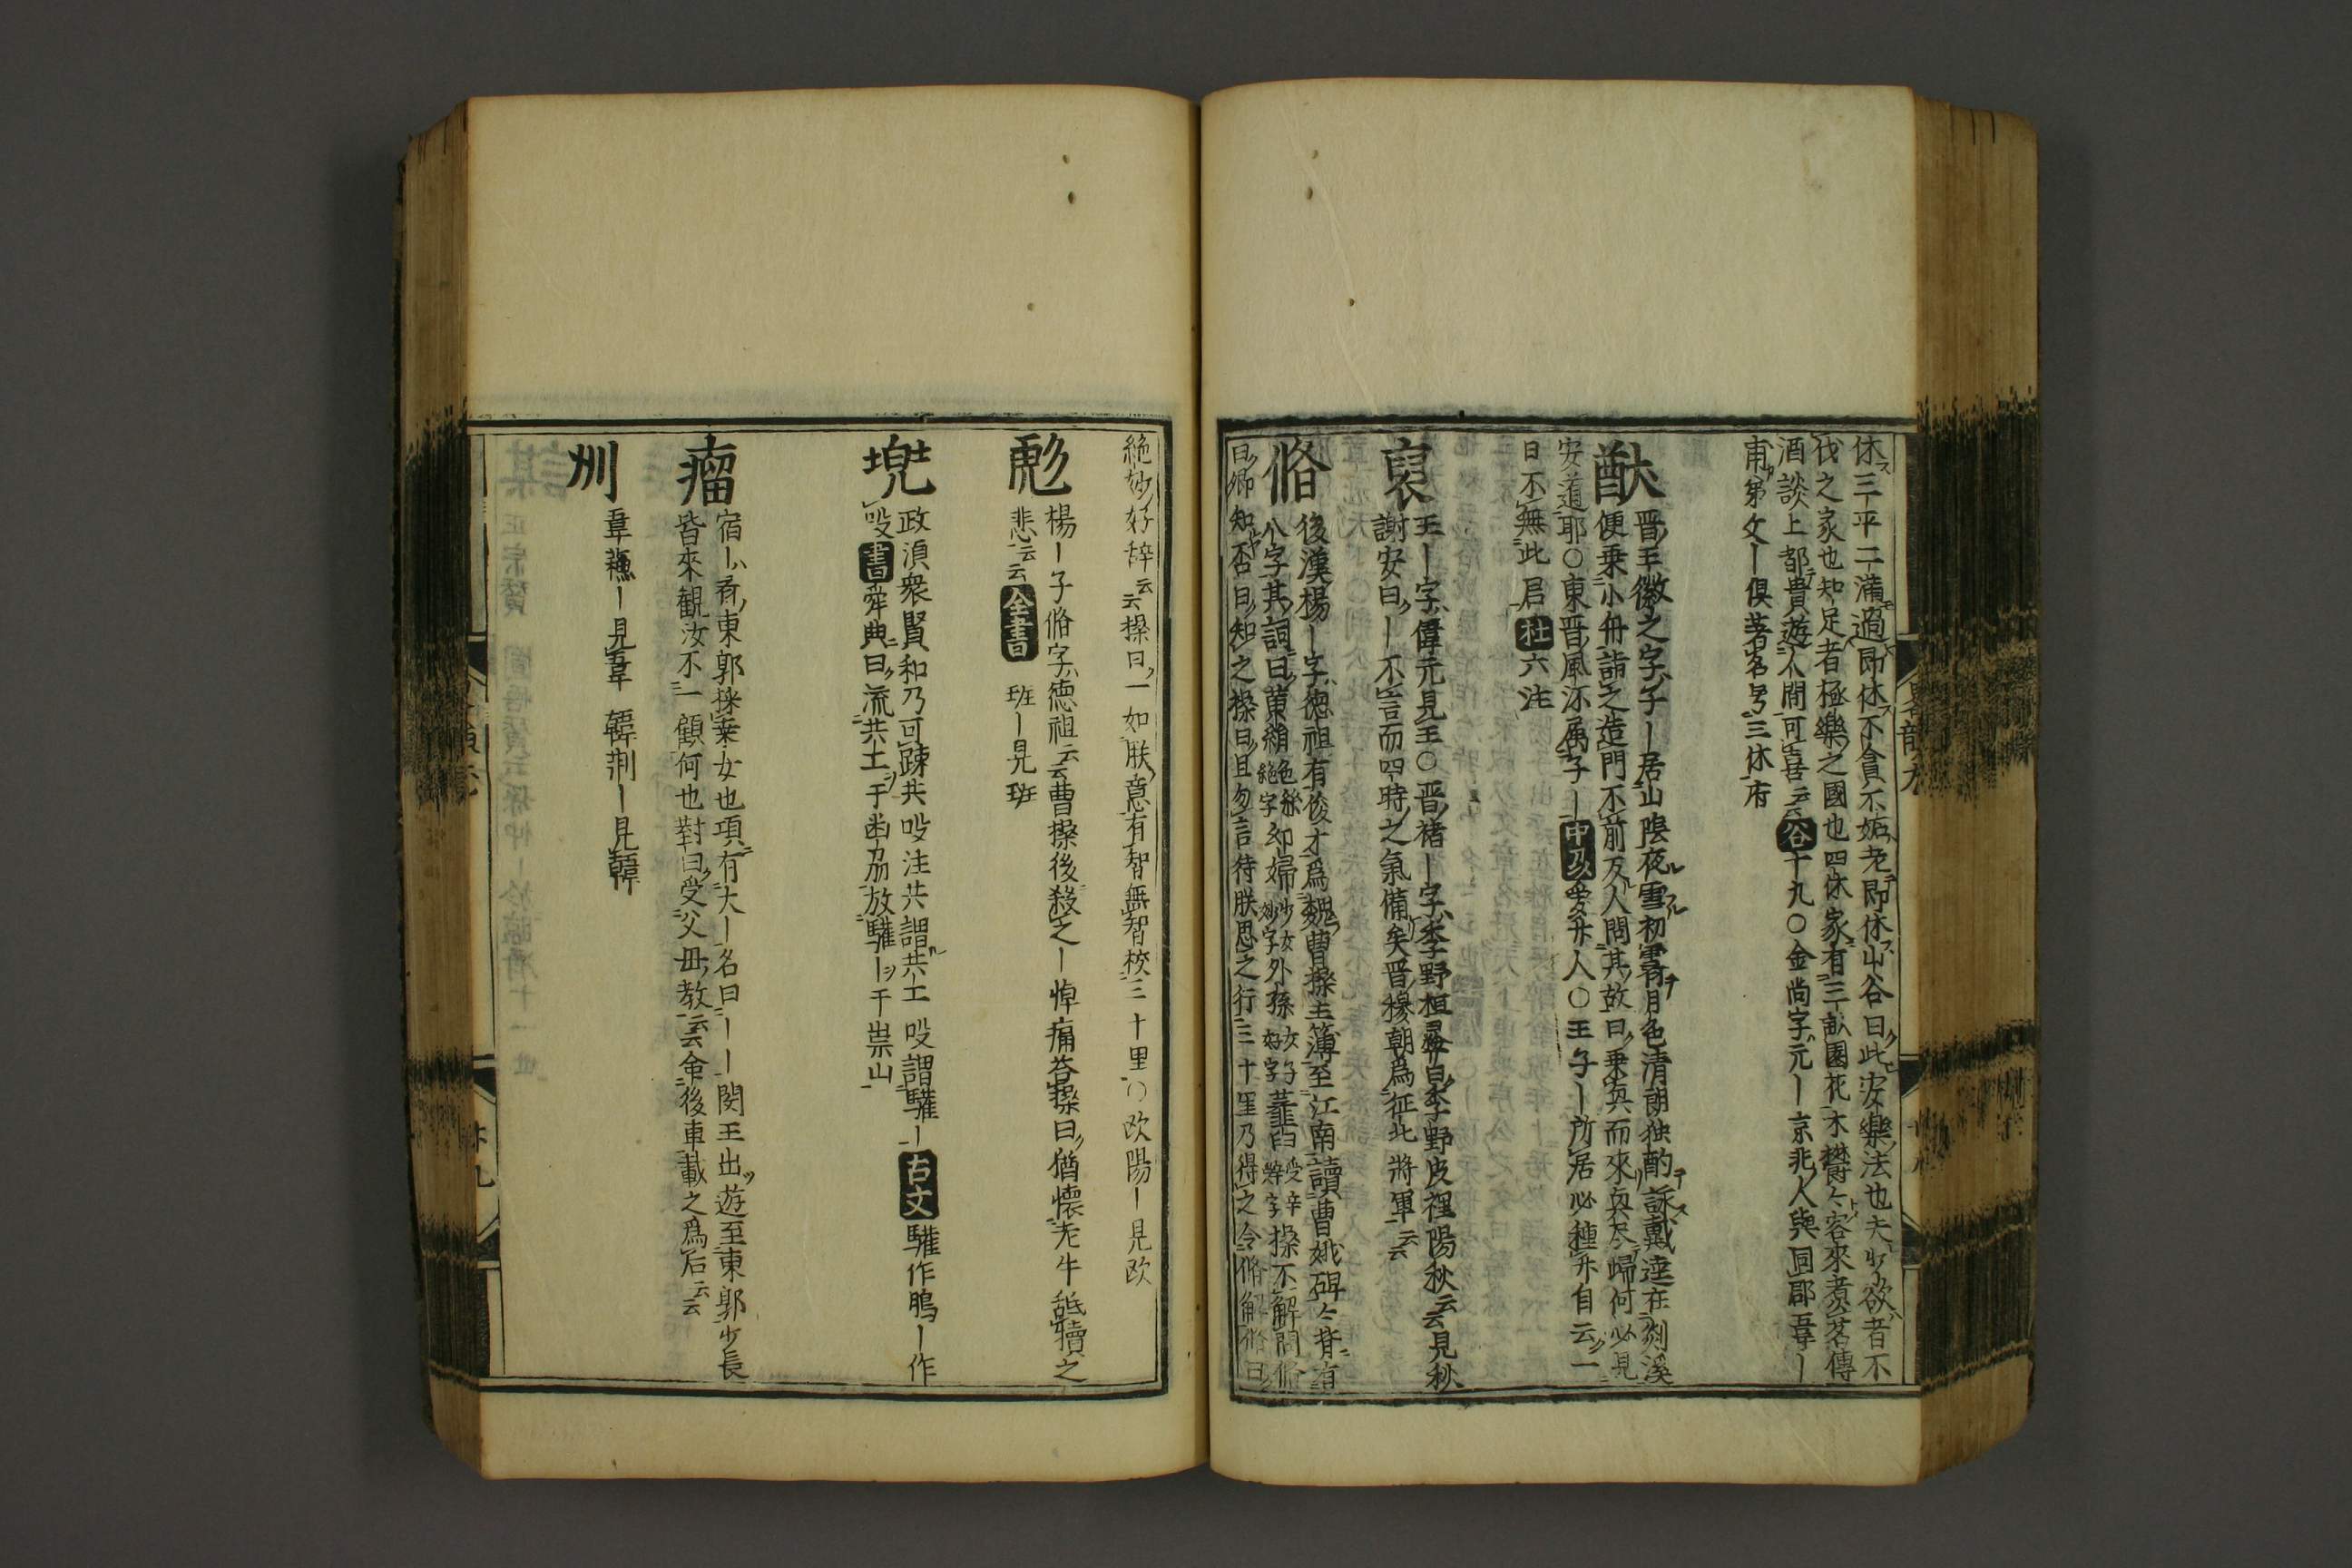 休三平二滿過即休不貪不妬老即休山谷曰此安樂法也夫少欲者不
伐之家也知足者極樂之國也四休家有三畝園花木欝々客來煮茗傳
酒談上都貴遊人間可喜云云谷十九〇金尚字元ー京兆人與同郡韋ー
甫第文ー俱著名号三休府
猷
晋王徽之字子ー居山陰夜雪初霽月色清朗独酌詠戴逵在剡溪
便乗小舟詣之造門不前及人問其故曰乗興而來興尽歸何必見
安道耶〇東晋風流属子ー中及愛竹人〇王子ー所居必種竹自云一
日不無此君杜六注
裒
王ー字偉元見王〇晋褚ー字季野桓彛曰季野皮裡陽秋云云見秋
謝安曰ー不言而四時之氣備矣晋穆朝為征北將軍云云
脩
後漢楊ー字德祖有俊才爲魏曹操主簿至江南讀曹娥碑々背有
八字其詞曰黄絹色絲絶字幼婦少女妙字外孫女子好字虀臼受辛辤字操不解問脩
曰卿知否曰知之操曰且勿言待朕思之行三十里乃得之令脩解脩曰
絶妙好辞云云操曰一如朕意有智無智校三十里〇欧陽ー見欧
彪
楊ー子脩字德祖云云曹操後殺之ー悼痛荅操曰猶懷老牛舐犢之
悲云云全書 班ー見班
兜
政湏衆賢和乃可疎共吺注共謂共工吺謂驩ー古文驩作鴅ー作
吺書舜典曰流共工于幽劦放驩ー于崇山
瘤
宿ー者東郭採桒女也項有大ー名曰ーー閔王出遊至東郭少長
皆來観汝不一顧何也對曰受父毋教云云命後車載之爲后云云
州
韋蘓ー見韋 韓荆ー見韓